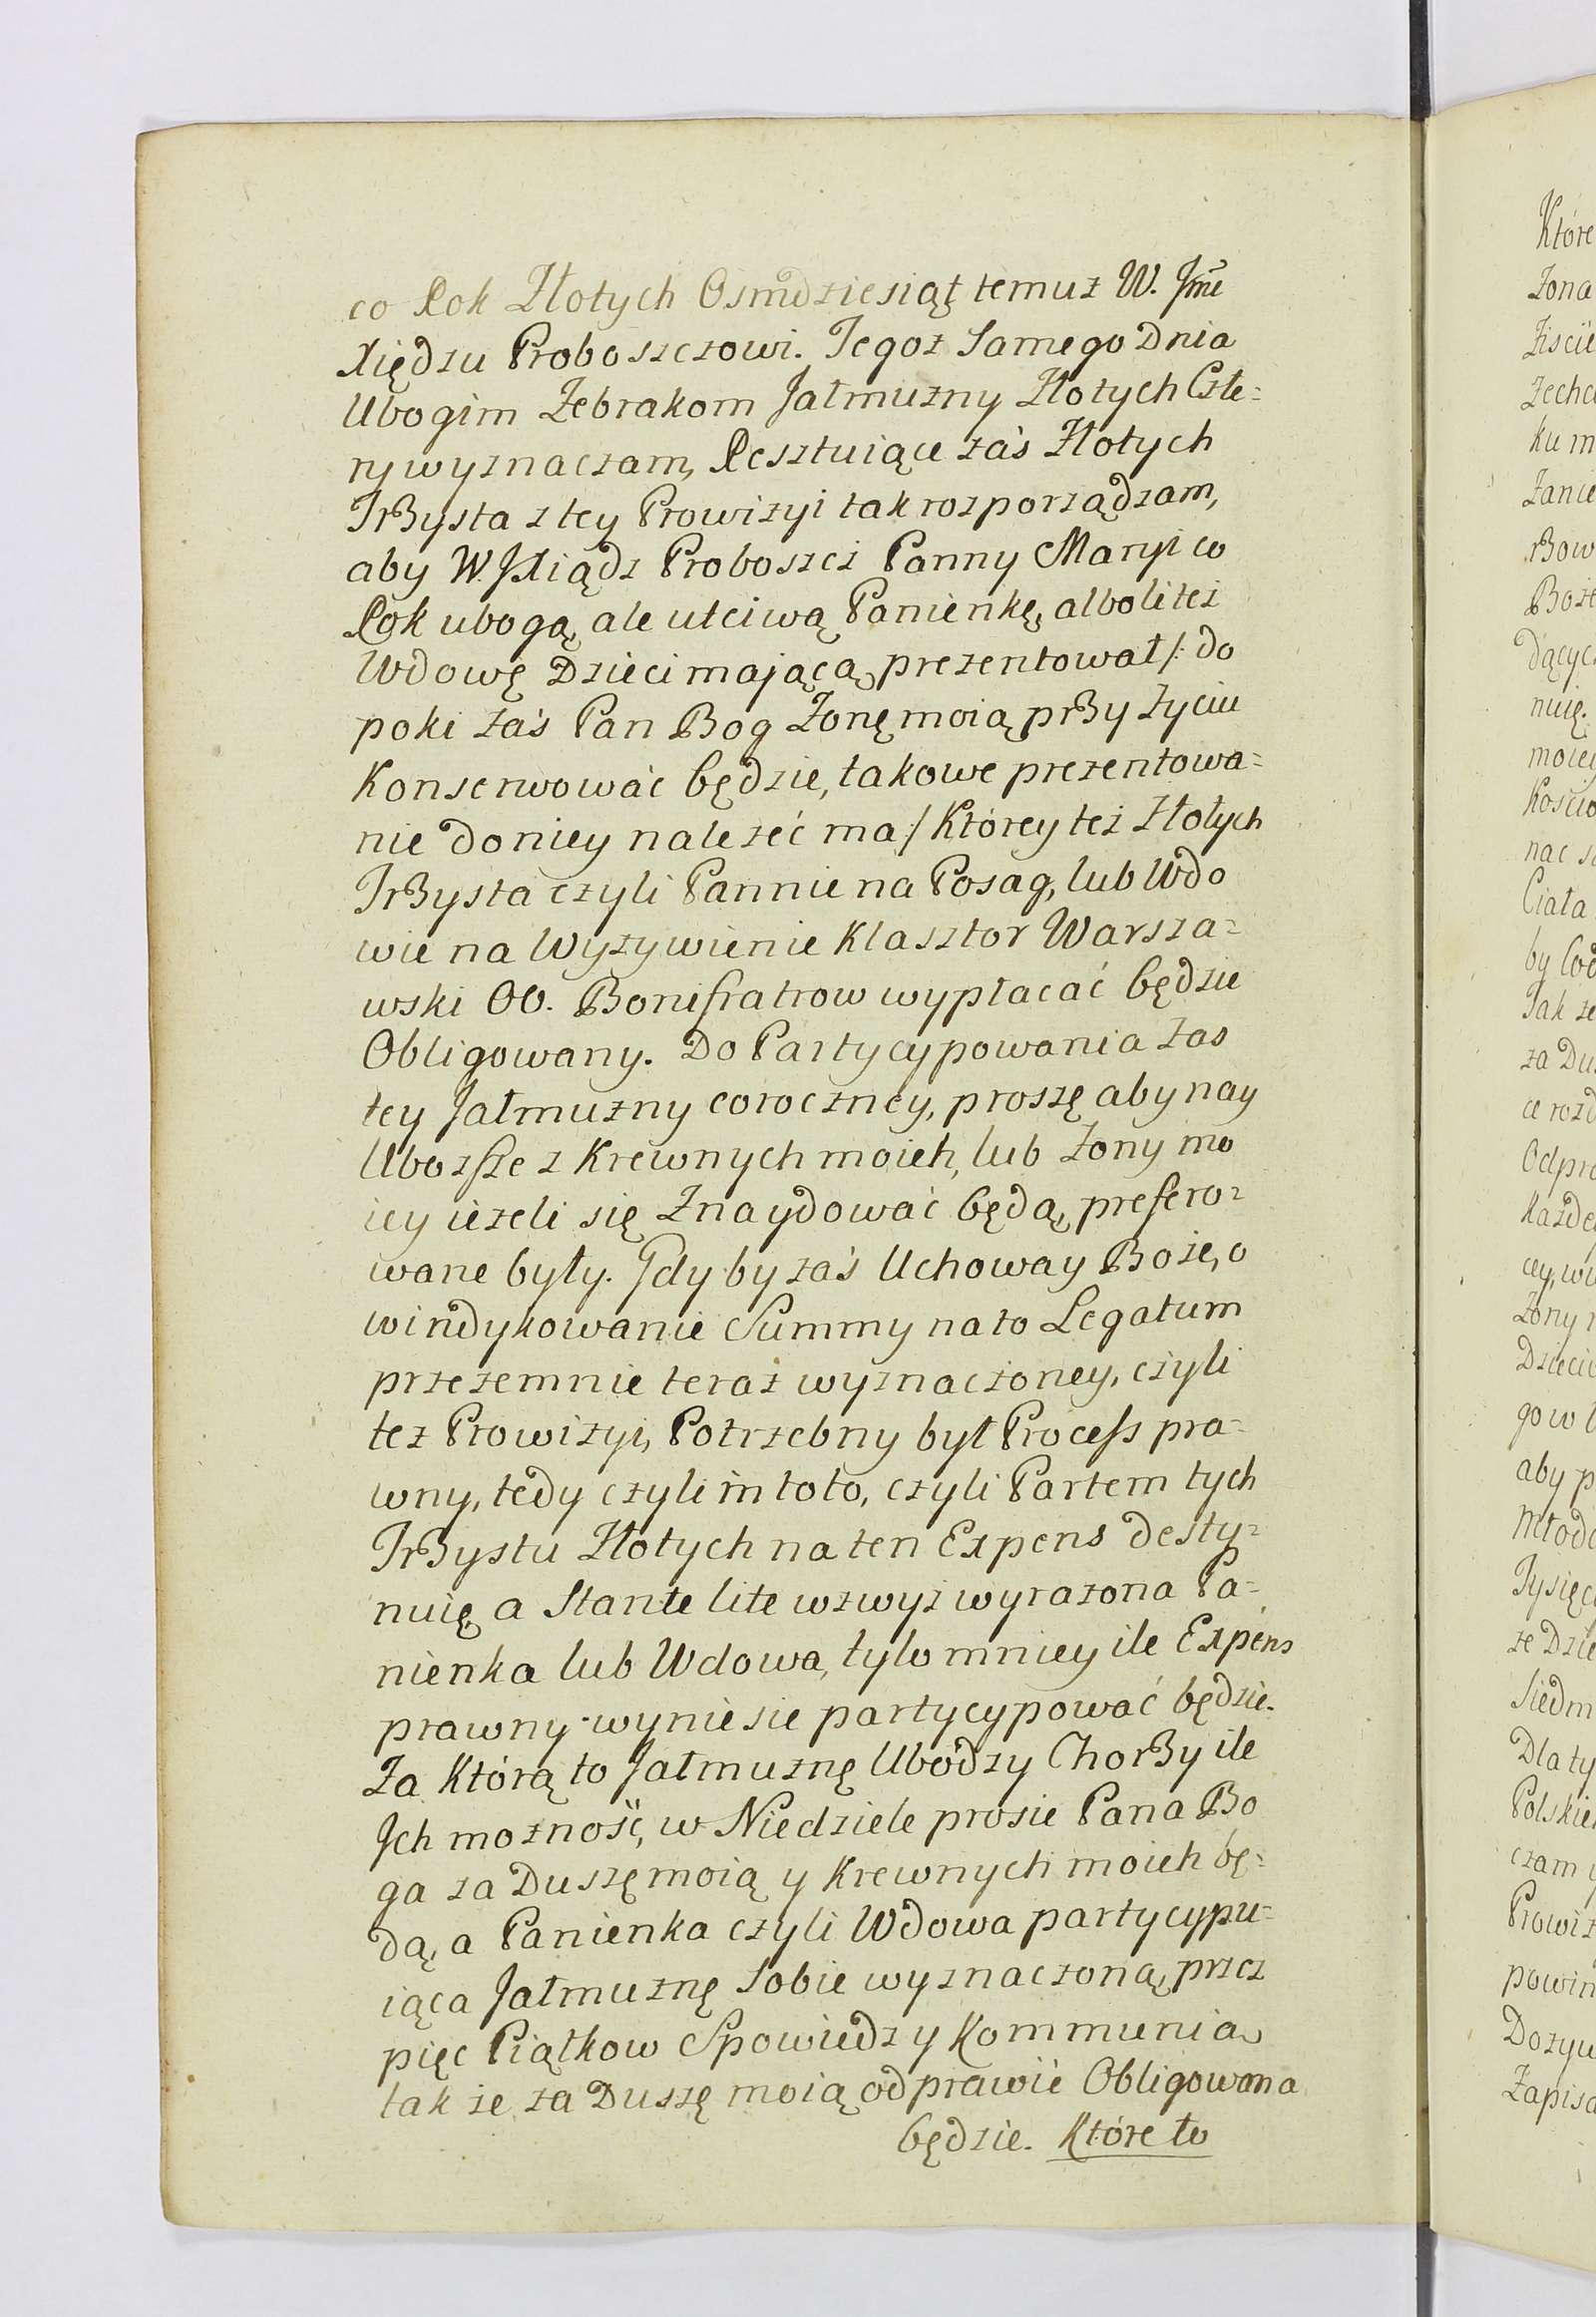 co Rok Złotych Osmdziesiąt temuż W. Jmć
Xiędzu Proboszczowi. Tegoż Samego Dnia
Ubogim Żebrakom Jałmużny Złotych Czte=
ry wyznaczam, Resztuiące zaś Złotych
Trzysta z tey Prowizyi tak rozporządzam,
aby W. JXiądz Proboszcz Panny Maryi co
Rok ubogą, ale utciwą Panienkę, alboli też
Wdowę Dzieci mającą, prezentował /: do
poki zaś Pan Bog Żonę moią przy życiu
Konserwować będzie, takowe prezentowa=
nie do niey należeć ma :/ Którey też Złotych
Trzysta czyli Pannie na Posag, lub Wdo
wie na Wyżywienie Klasztor Warsza=
wski OO. Bonifratrow wypłacać będzie
Obligowany. Do Partycypowania zas
tey Jałmużny coroczney, proszę aby nay
Ubozsze z Krewnych moich, lub Żony mo
iey ieżeli się Znaydować będą, prefero=
wane były. Gdyby zaś Uchoway Boże, o
windykowanie Summy na to Legatum
przezemnie teraz wyznaczoney, czyli
też Prowizyi, Potrzebny był Process pra=
wny, tedy czyli in toto, czyli Partem tych
Trzystu Złotych na ten Expens desty=
nuię, a Stante lite wzwyż wyrażona Pa=
nienka lub Wdowa, tylo mniey ile Expens
prawny wyniesie partycypować będzie.
Za Którą to Jałmużnę Ubódzy Chorzy ile
Ich możność, w Niedziele prosie Pana Bo
ga za Duszę moią y Krewnych moich bę=
dą, a Panienka czyli Wdowa partycypu=
iąca Jałmużnę Sobie wyznaczoną, przez
pięc Piątkow Spowiedz y Kommunią
także za Duszę moią odprawić Obligowana
będzie. Które to
Które
Żona
ku m
Bow
nuię.
Ciała
Tak że
za Du
Odpra
Żony
Dzieci
go w
aby p
Siedm
Dla ty
czam
powin